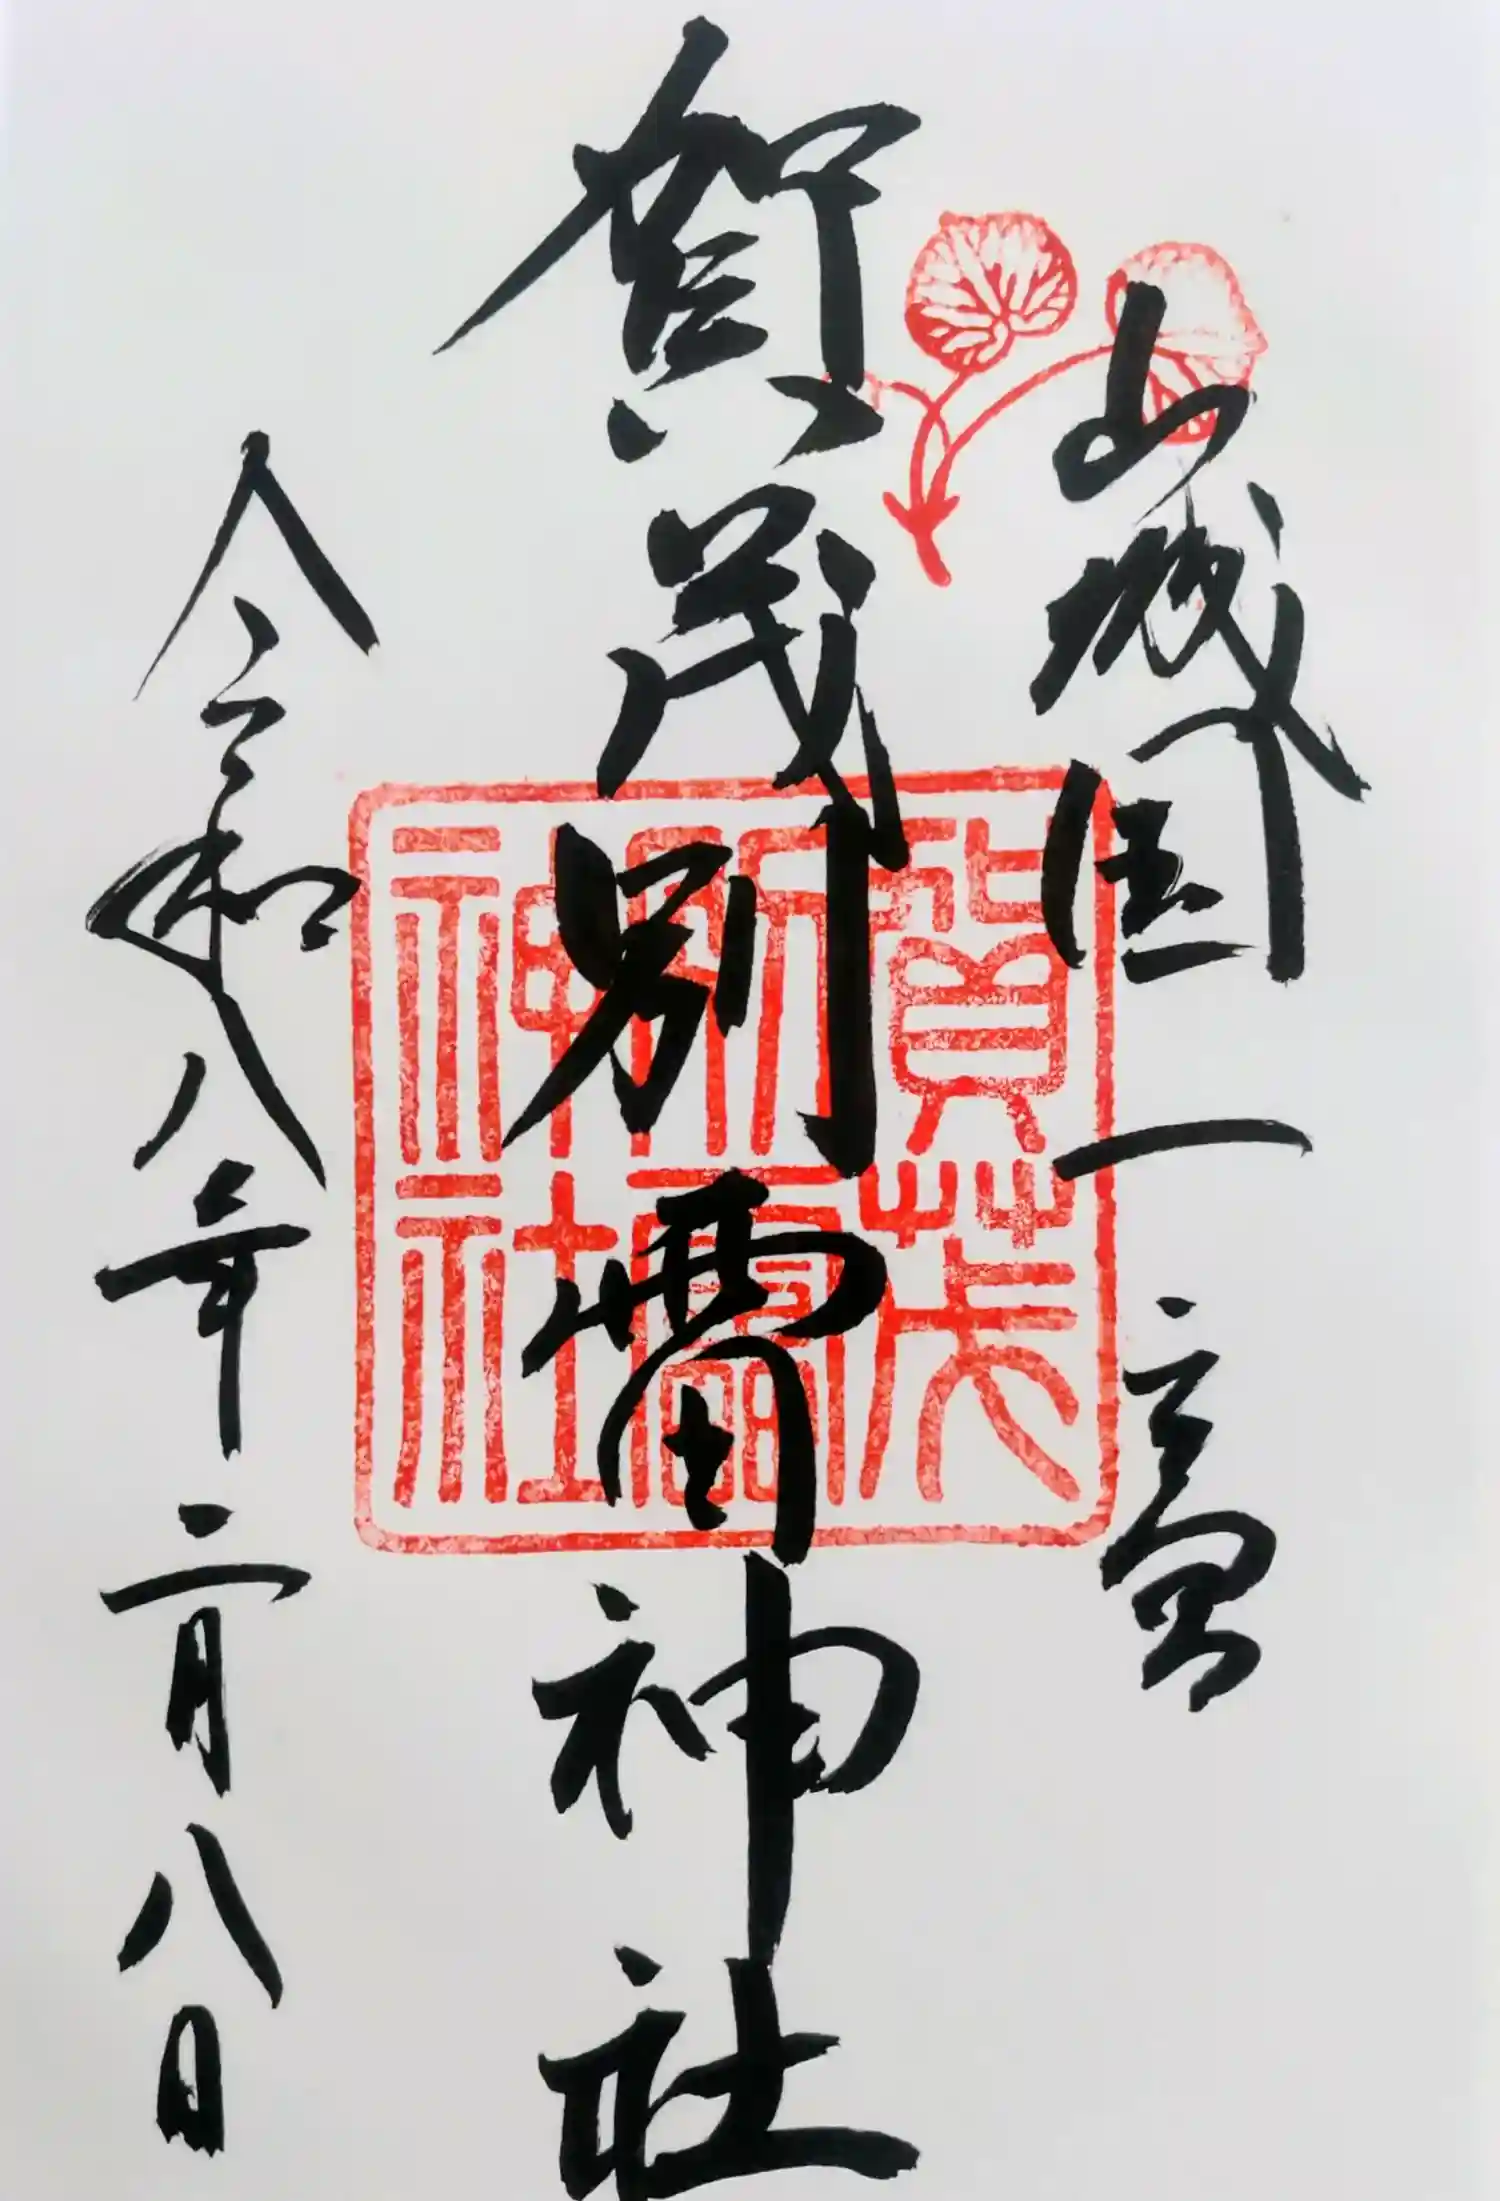 山城国一之宮
賀茂別雷神社
令和八年二月八日
賀茂
別雷
神社